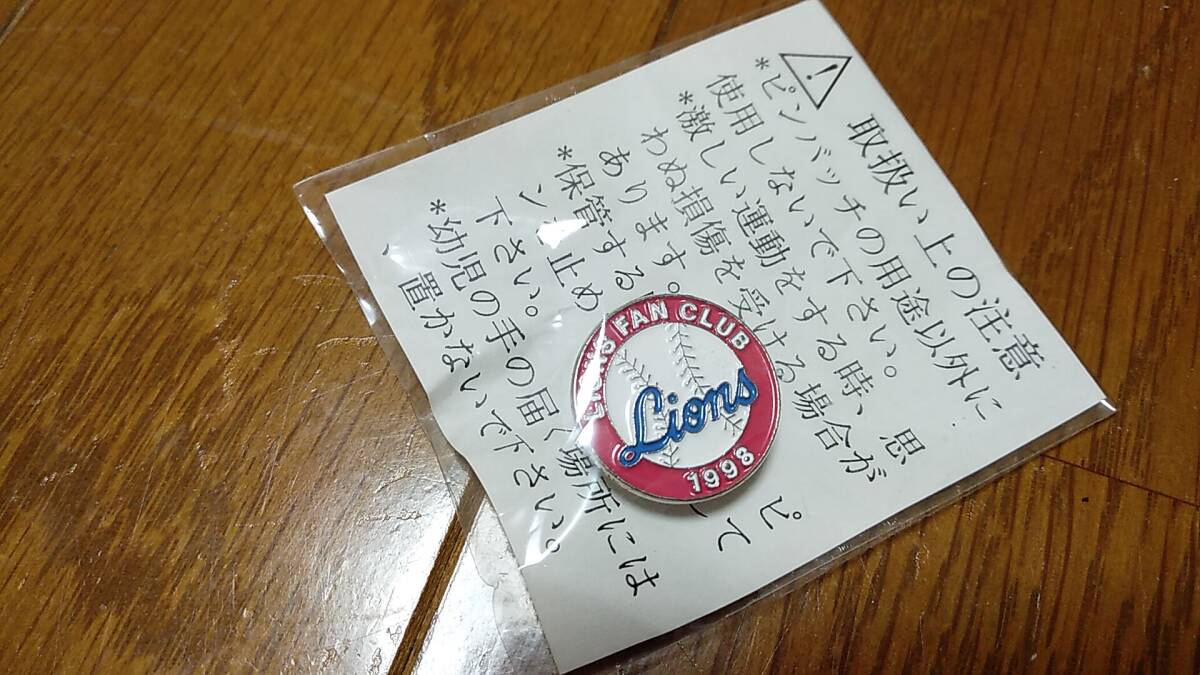 取扱い上の注意
*ピンバッチの用途以外に
使用しないで下さい。
*激しい運動をする時、思
わぬ損傷を受ける場合が
あります。
*保管する
ピ
ン
止め
て
下さい。
*幼児の手の届く場所には
、置かないで下さい。
LIONS FAN CLUB
Lions
1998